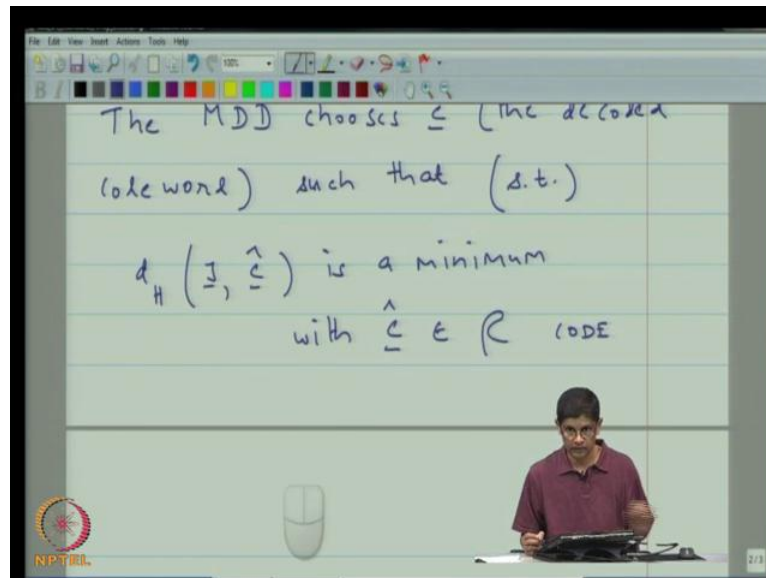 File Edit View Insert Actions Tools Help
The MDD chooses c (the decoded
codeword) such that (s.t.)
d_H (y, ĉ) is a minimum
with ĉ ∈ C CODE
NPTEL
2/3